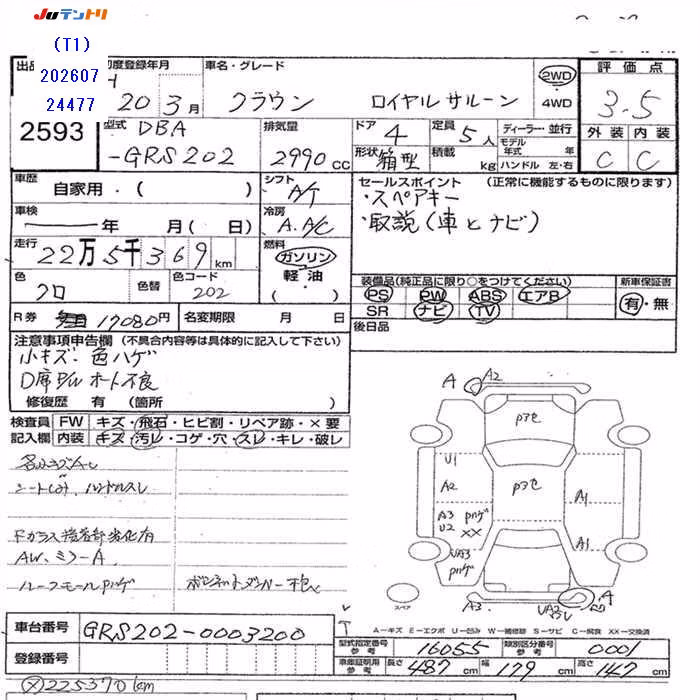 JUテントリ
(T1)
202607
24477
2593
初度登録年月
20 3月
車名・グレード
クラウン ロイヤルサルーン
2WD
4WD
評価点
3.5
外装 内装
C C
型式
DBA
-GRS202
排気量
2990 CC
ドア 4
定員 5人
形状 箱型
積載 kg
ディーラー・並行
モデル年式 年
ハンドル 左・右
車歴
自家用・( )
シフト
A/T
車検
年 月( 日)
冷房
A.A/C
走行
22万5千369 km
燃料
ガソリン
軽・油
・( )
色
クロ
色替
色コード
202
R券 17080円
名変期限 月 日
セールスポイント (正常に機能するものに限ります)
・スペアキー
・取説(車とナビ)
装備品(純正品に限り○をつけてください)
PS PW ABS エアB
SR ナビ TV
新車保証書
有・無
後日品
注意事項申告欄 (不具合内容等は具体的に記入して下さい)
小キズ・色ハゲ
D席P/Wオート不良
修復歴 有 (箇所 )
検査員 FW キズ・飛石・ヒビ割・リペア跡・×要
記入欄 内装 キズ・汚レ・コゲ・穴・スレ・キレ・破レ
Fガラス接着部劣化有
AW、ミラーA
ルーフモールPハゲ
A A2
Pアセ
U1
A2
Pアセ
A3 Pハゲ
U2 ××
A1
UA3
Pハゲ
A1
スペア
A3
UA2
A
A―キズ E―エクボ U―凹み W―補修跡 S―サビ C―腐食 XX―交換済
車台番号 GRS202-0003200
登録番号
型式指定番号 参考 16055
類別区分番号 参考 0001
車庫証明用 参考 長さ 487cm 幅 179cm 高さ 147cm
225370km